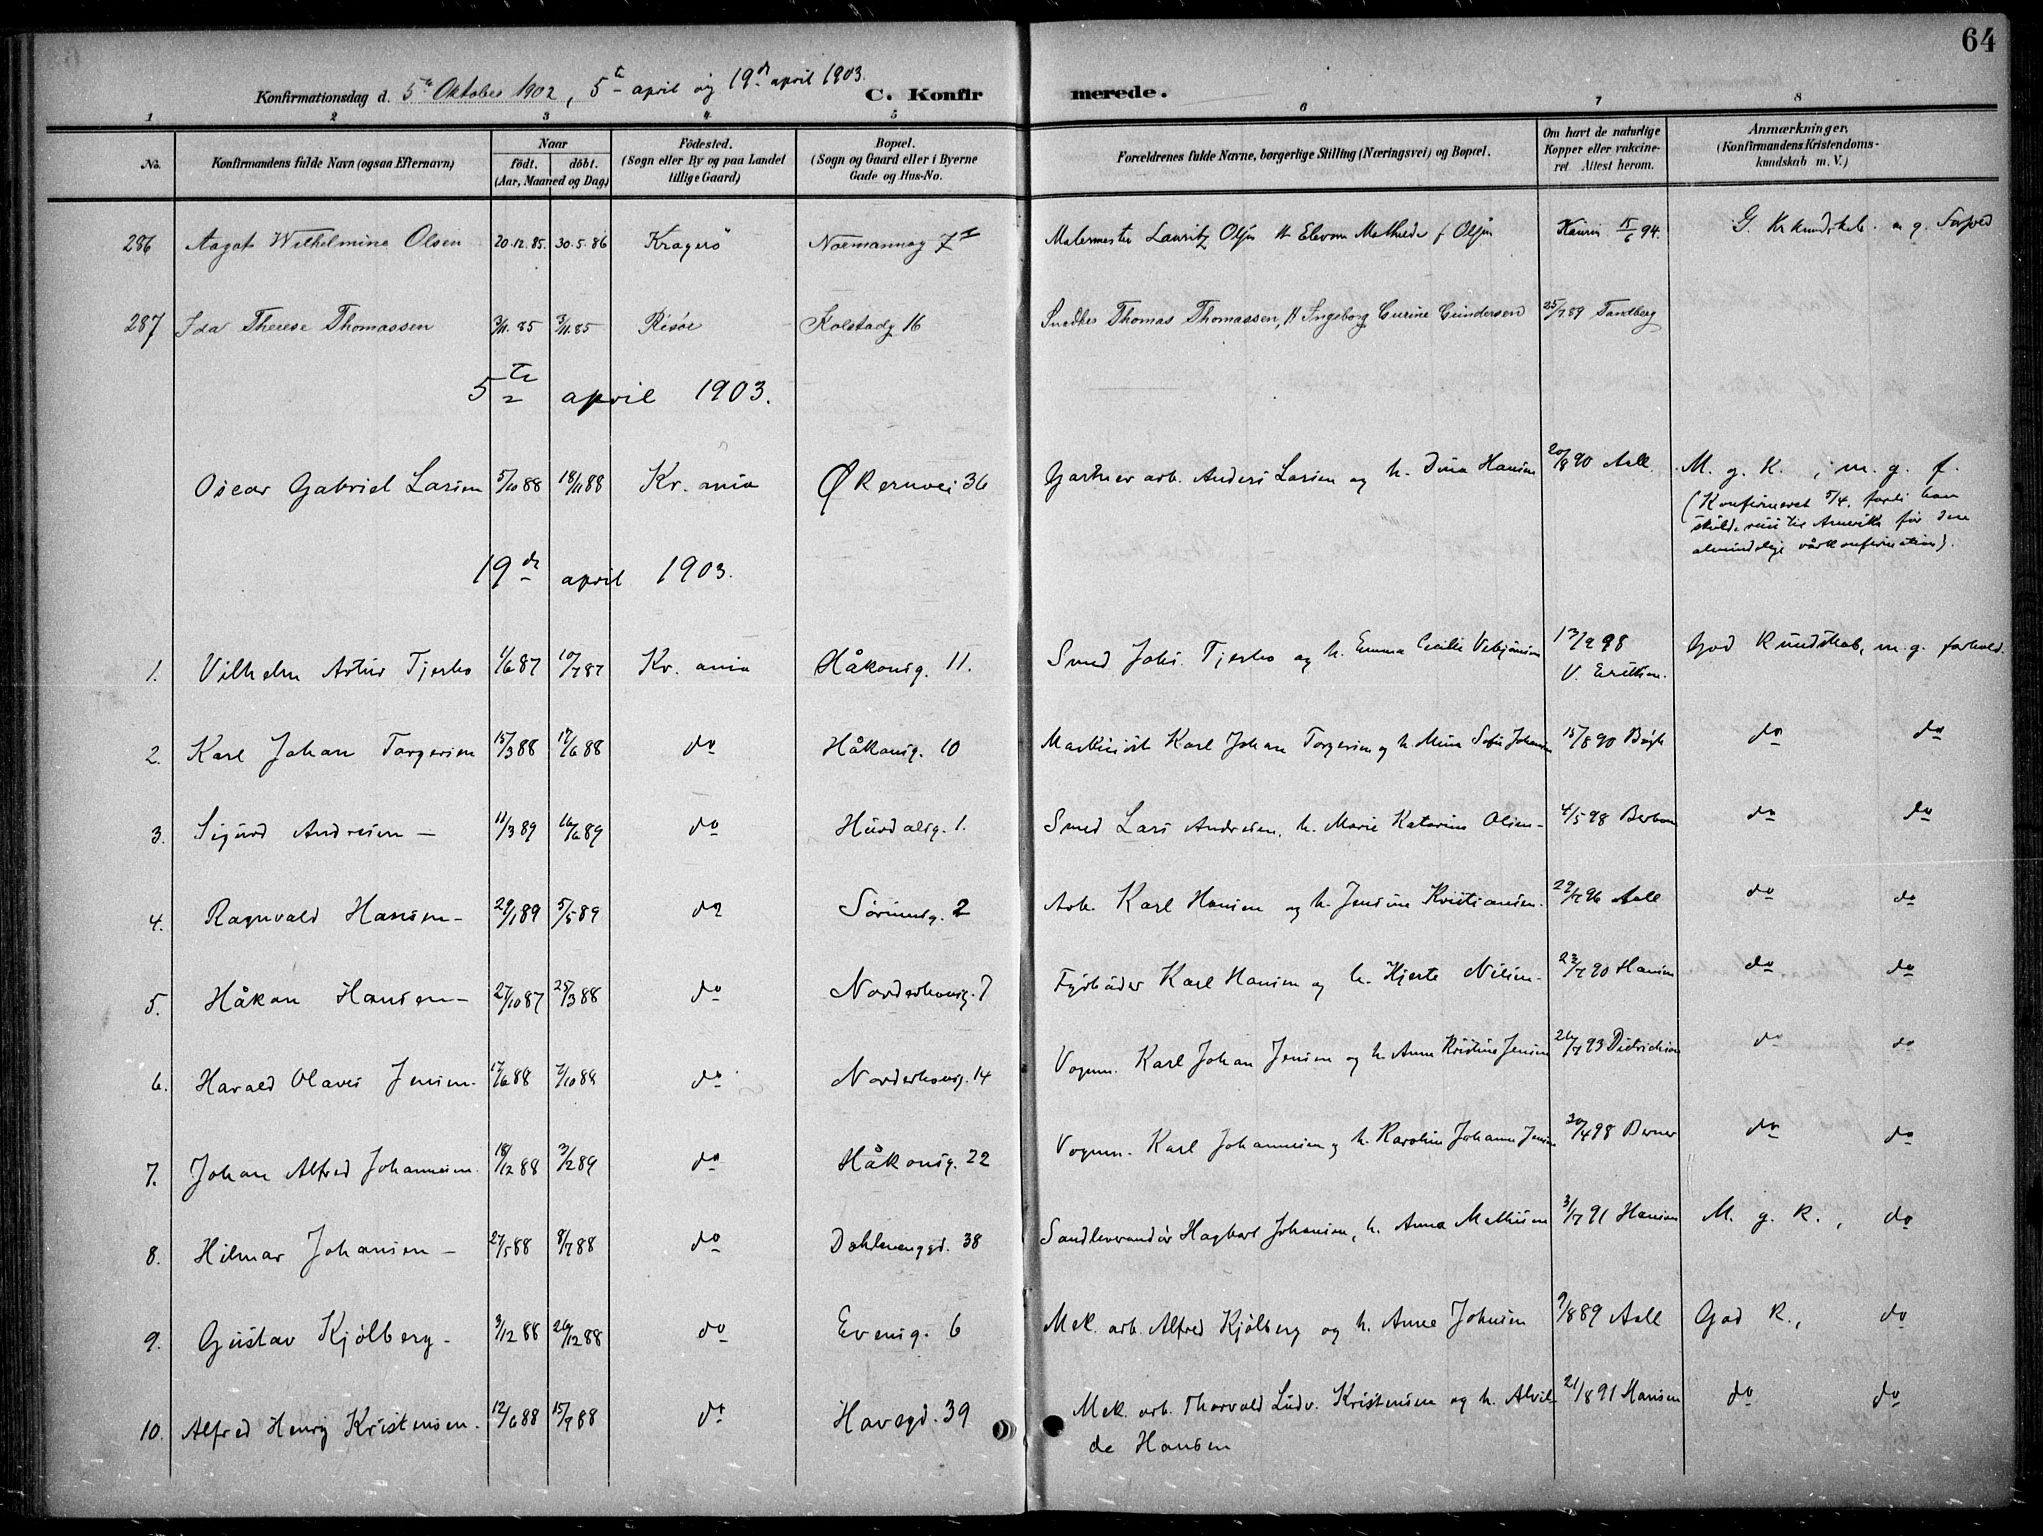 64
Konfirmationsdag d. 5te Oktober 1902, 5te april og 19de april 1903.
C. Konfirmerede.
1 2 3 4 5 6 7 8
No.
Konfirmandens fulde Navn (ogsaa Efternavn)
Naar
födt. döbt.
(Aar, Maaned og Dag)
Födested.
(Sogn eller By og paa Landet
tillige Gaard)
Bopæl.
(Sogn og Gaard eller i Byerne
Gade og Hus-No.
Forældrenes fulde Navne, borgerlige Stilling (Næringsvei) og Bopæl.
Om havt de naturlige
Kopper eller vakcine-
ret. Attest herom.
Anmærkninger,
(Konfirmandens Kristendoms-
kundskab m. V.)
286 Aagot Wilhelmine Olsen 20.12.85. 30.5.86 Kragerö 7 Malermester Lauritz Olsen 94. G. Kr kundskab. m. g.
287 Ida Therese Thomassen 3/11.85 3/11.85 Risöe Kolstadg 16 Snedker Thomas Thomassen, H Ingeborg Gurine Gundersen 25/7.89 Tandberg
5te april 1903.
Oscar Gabriel Larsen 5/10 88 18/11 88 Kr.ania Økernvei 36 Gartnerarb. Anders Larsen og h. Dina Hansen 20/8 90 Aall. M. g. K., m. g. f.
(Konfirmeret 5/4, fordi han
skulde reise til Amerika før den
almindelige vårkonfirmation).
19de april 1903.
1. Vilhelm Artur Tjerbo 1/6 87 10/7 87 Kr.ania Håkonsg. 11. Smed Johs. Tjerbo og h. Emma Cecilie 13/9 98 God Kundskab, m. g. forhold.
V. Eriksen.
2. Karl Johan Torgersen 15/3 88 17/6 88 do Håkonsg. 10 Maskinist Karl Johan Torgersen og h. Mina Sofie Johansen 15/8 90 do do
3. Sigurd Andresen – 11/3 89 16/6 89 do Hurdalsg. 1. Smed Lars Andresen, h. Marie Katarine Olsen – 4/5 98 do do
4. Ragnvald Hansen – 29/1 89 5/5 89 do Sörumsg. 2 Arb. Karl Hansen og h. Jensine Kristiansen. 29/7 96 Aall do do
5. Håkon Hansen – 27/10 87 25/3 88 do Norderhovsg. 7 Fyrbøder Karl Hansen og h. Hjerte Nilsen. 23/7 90 Hansen do do
6. Harald Olaves Jensen. 17/6 88 7/10 88 do Norderhovsg. 14 Vognm. Karl Johan Jensen og h. Anne Kristine Jensen 26/7 93 Dietrichson do do
7. Johan Alfred Johannesen. 18/12 88 3/2 89 do Håkonsg. 22 Vognm. Karl Johannesen og h. Karoline Johanne Jensen 30/4 98 Berner do do
8. Hilmar Johansen – 27/5 88 8/7 88 do Dahlenenggd. 38 Sandleverandør Hagbart Johansen, h. Anna Mathisen 3/7 91 Hansen M. g. K., do
9. Gustav Kjölberg – 3/12 88 26/12 88 do Evensg. 6 Mek. arb. Alfred Kjölberg og h. Anne Johnsen 9/8 89 Aall God K., do
10. Alfred Henry Kristensen. 12/6 88 15/9 88 do Havegd. 39 Mek. arb. Thorvald Ludv. Kristensen og h. Alvil- 21/8 91 Hansen do do
de Hansen